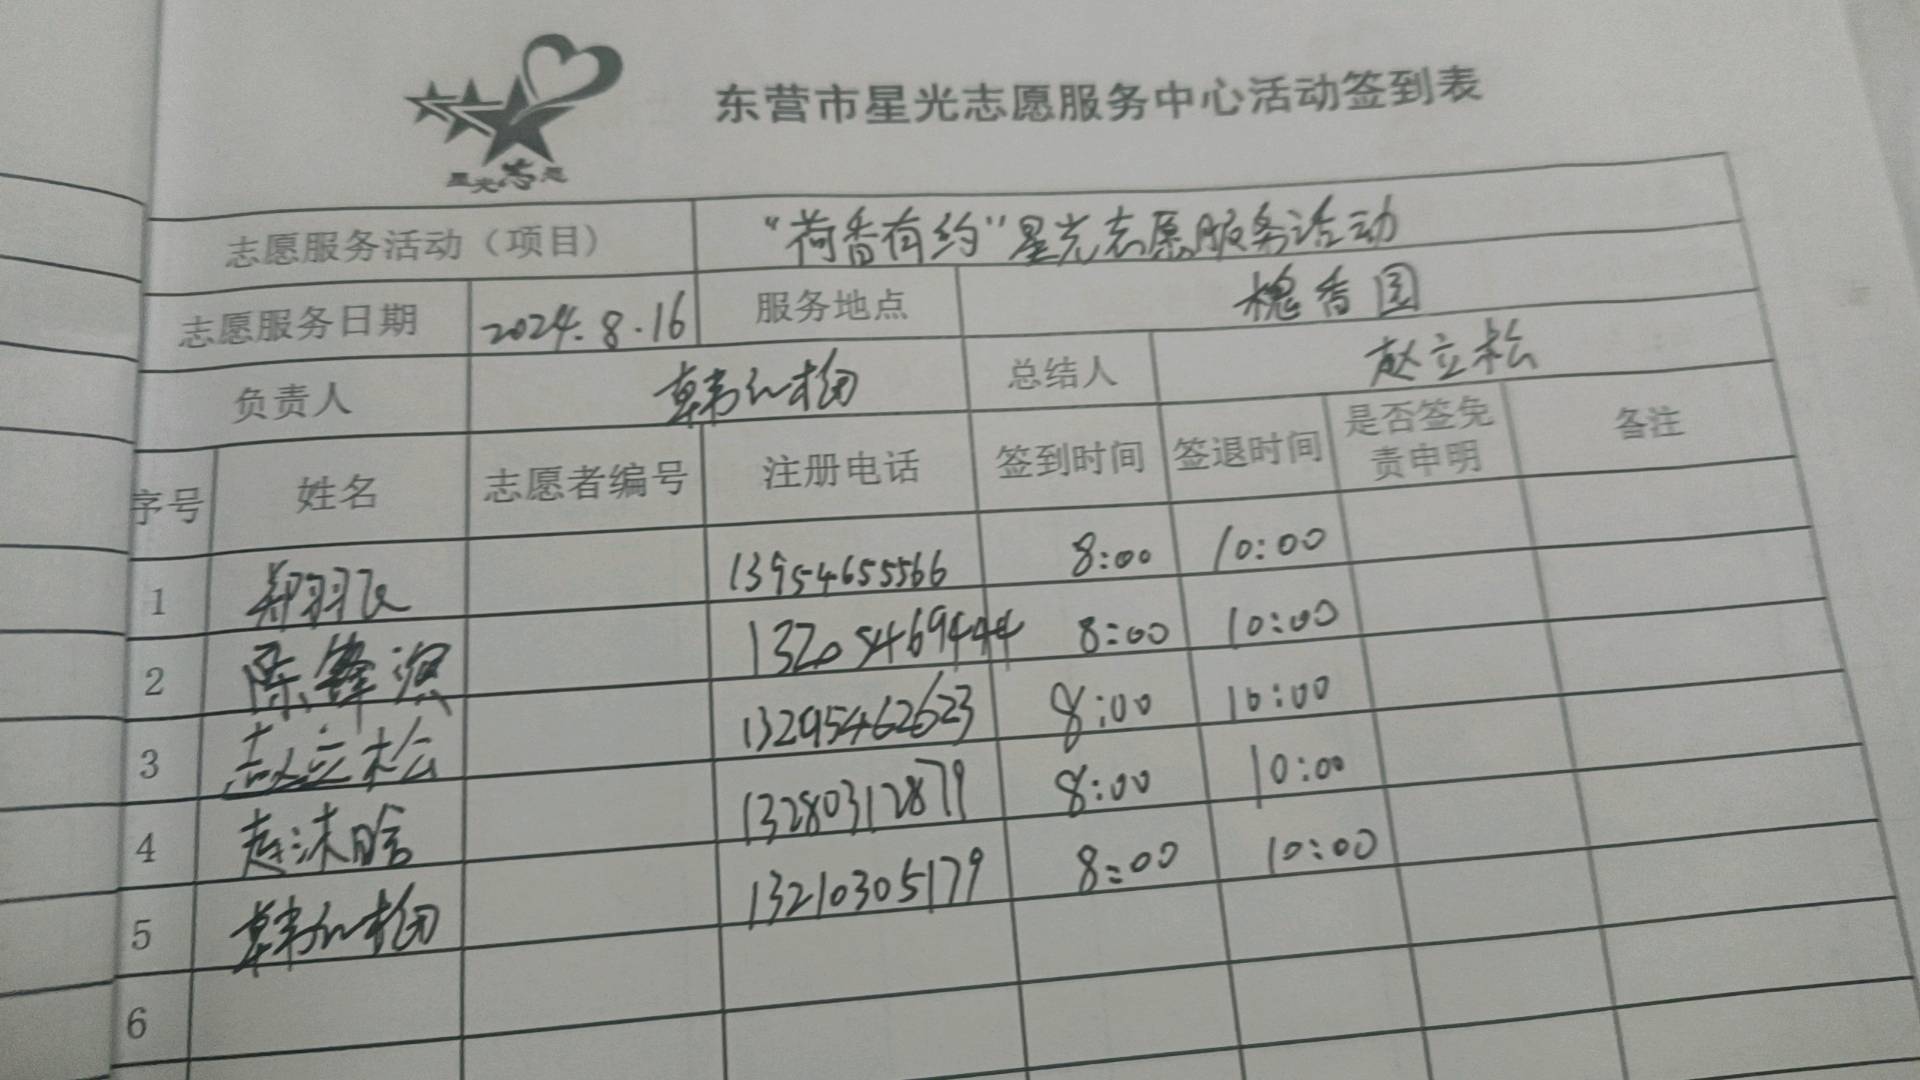 星光志愿
东营市星光志愿服务中心活动签到表
志愿服务活动（项目） “荷香有约”星光志愿服务活动
志愿服务日期 2024.8.16 服务地点 槐香园
负责人 韩红梅 总结人 赵立松
序号 姓名 志愿者编号 注册电话 签到时间 签退时间 是否签免责申明 备注
1 郑羽飞 13954655566 8:00 10:00
2 陈锋滨 13205469444 8:00 10:00
3 赵立松 13295462623 8:00 10:00
4 赵沫晗 13280312879 8:00 10:00
5 韩红梅 13210305179 8:00 10:00
6